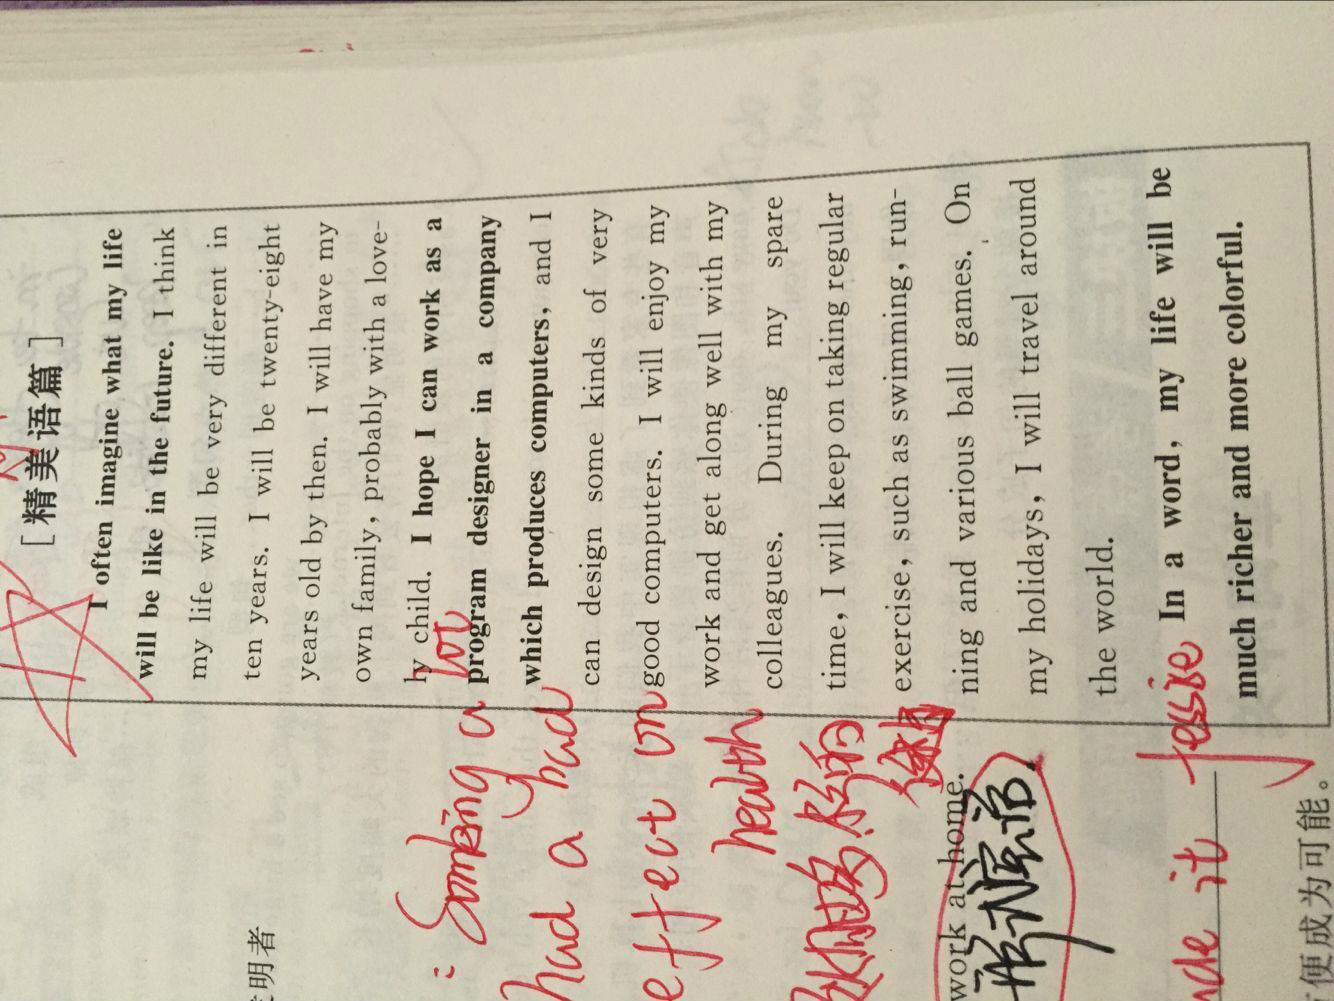 [精美语篇]
I often imagine what my life
will be like in the future. I think
my life will be very different in
ten years. I will be twenty-eight
years old by then. I will have my
own family, probably with a love-
ly child. I hope I can work as a
program designer in a company
which produces computers, and I
can design some kinds of very
good computers. I will enjoy my
work and get along well with my
colleagues. During my spare
time, I will keep on taking regular
exercise, such as swimming, run-
ning and various ball games. On
my holidays, I will travel around
the world.
In a word, my life will be
much richer and more colorful.
明者
Somking a lot
had a bad
effect on
health
work at home.
it Jessie
便成为可能。